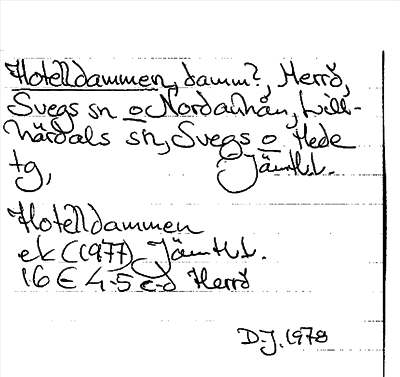 Hotelldammen, damm?, Herrö,
Svegs sn o Nordanhån, Lill-
härdals sn, Svegs o Hede
tg, Jämtl.l.
Hotelldammen
ek C (1977) Jämtl.l.
16 E 4-5 c-d Herrö
D.J. 1978